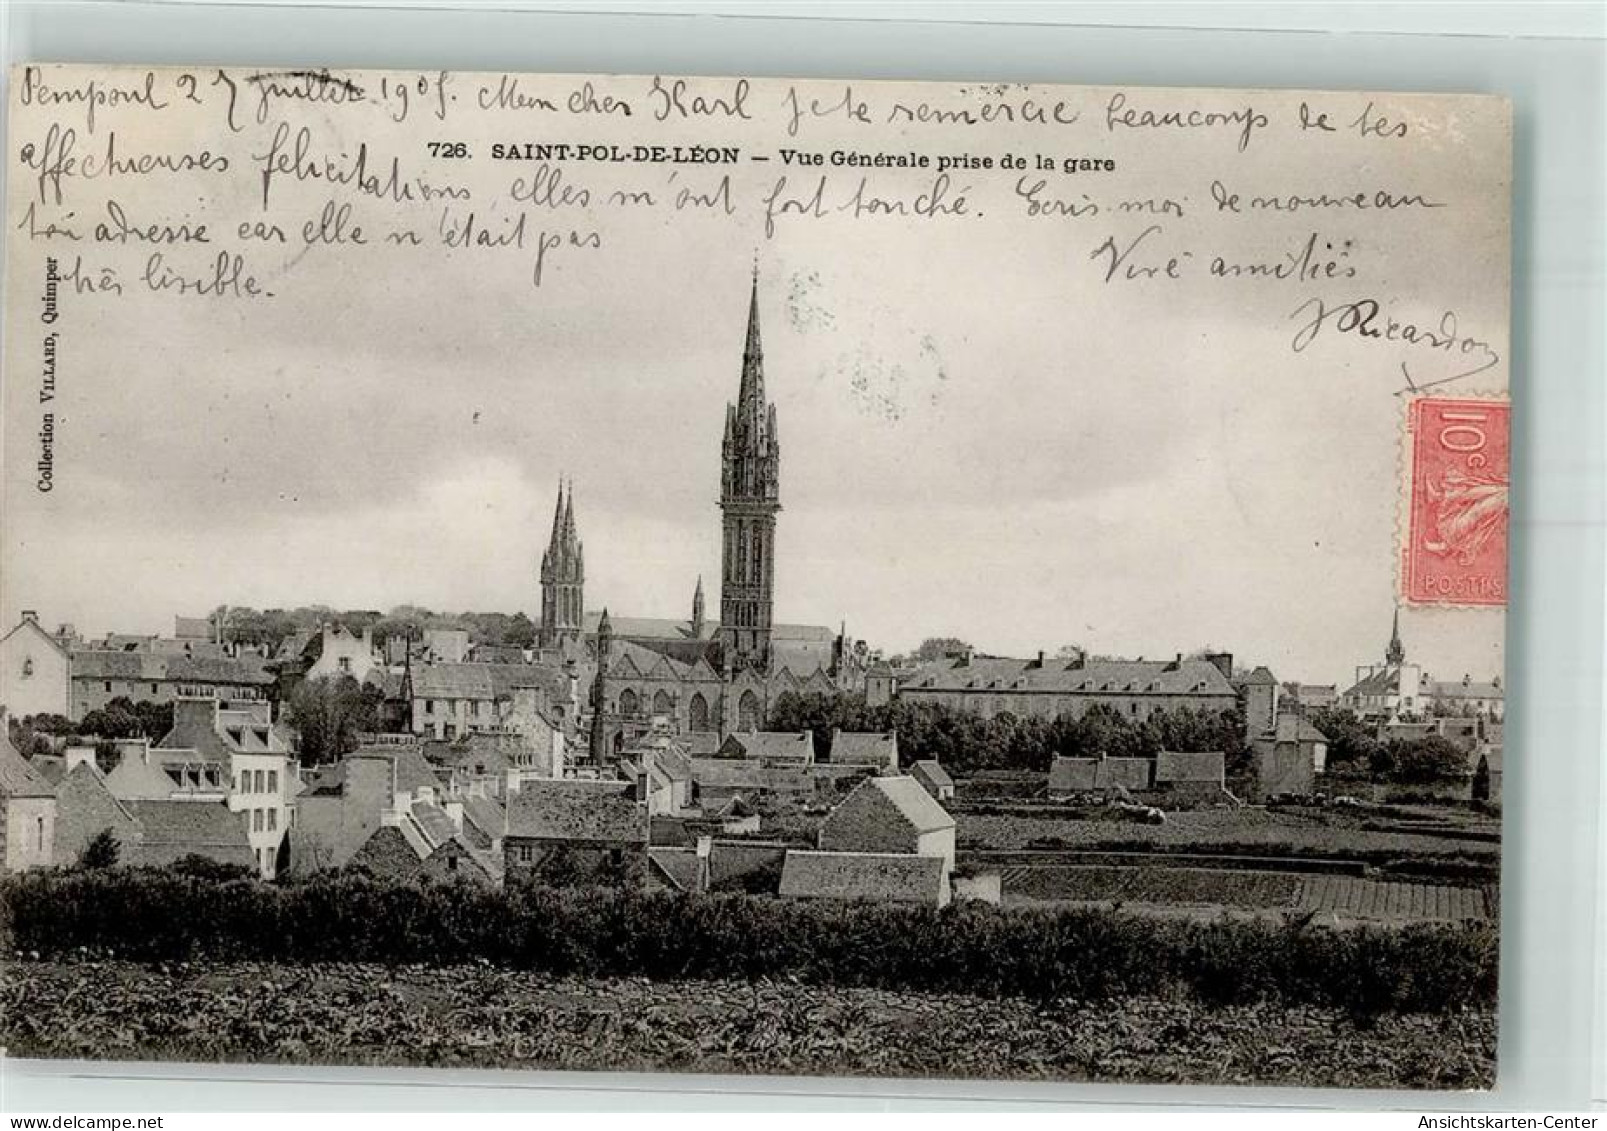 Pempoul 27 Juillet 1905. Mon cher Karl Je te remercie beaucoup de tes
726. SAINT-POL-DE-LÉON — Vue Générale prise de la gare
affectueuses félicitations, elles m'ont fort touché. Ecris-moi de nouveau
ton adresse car elle n'était pas
très lisible.
Vive amitiés
J Ricardou
Collection VILLARD, Quimper
10c
POSTES
Ansichtskarten-Center